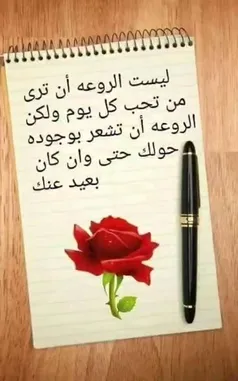 ليست الروعه أن ترى
من تحب كل يوم ولكن
الروعه أن تشعر بوجوده
حولك حتى وان كان
بعيد عنك